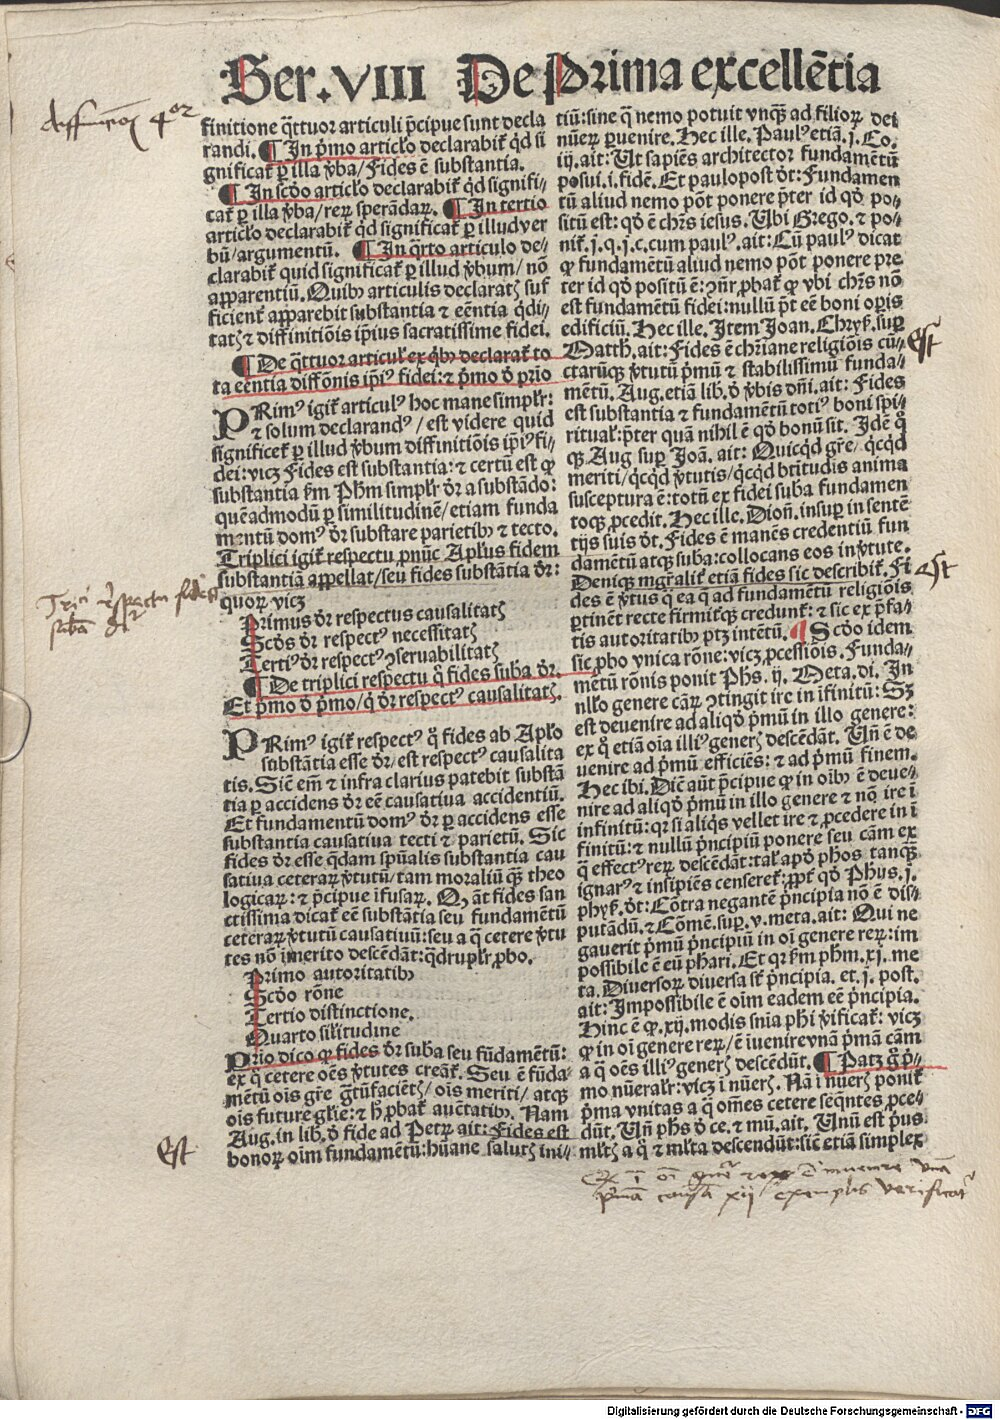 Ser. VIII De Prima excellētia
finitione q̄ttuor articuli p̄cipue sunt decla
randi. ¶ In p̄mo articło declarabiť q̇d si
gnificať ꝑ illa v̄ba/Fides ē substantia.
¶ In scd̄o articło declarabiť q̇d signifi⸗
cať ꝑ illa v̄ba/reꝝ sperādaꝝ. ¶ In tertio
articło declarabiť q̇d significať ꝑ illud ver
bū/argumentū. ¶ In q̄rto articulo de⸗
clarabiť quid significať ꝑ illud v̄bum/nō
apparentiū. Quibꝰ articulis declaratꝭ suf
ficienť apparebit substantia ⁊ eēntia q̇di⸗
tatꝭ ⁊ diffinitiōis ip̄ius sacratissime fidei.
¶ De q̄ttuor articuł ex q̇bꝰ declarať to
ta eēntia diffōnis ip̄iꝰ fidei: ⁊ p̄mo d̄ pr̄io
PRimꝰ igiť articulꝰ hoc mane simplr̄:
⁊ solum declarandꝰ/est videre quid
significet ꝑ illud v̄bum diffinitiōis ip̄iꝰ fi⸗
dei: vicꝫ Fides est substantia: ⁊ certū est ꝙ
substantia k̄m Ph̄m simplr̄ dr̄ a substādo:
quēadmodū ꝑ similitudinē/etiam funda
mentū domꝰ dr̄ substare parietibꝰ ⁊ tecto.
Triplici igiť respectu ꝓnūc Apl̄us fidem
substantiā appellat/seu fides substātia dr̄:
quoꝝ vicꝫ
Primus dr̄ respectus causalitatꝭ
Scd̄s dr̄ respectꝰ necessitatꝭ
Tertiꝰ dr̄ respectꝰ ꝯseruabilitatꝭ
¶ De triplici respectu q̄ fides suba dr̄.
Et p̄mo d̄ p̄mo/q̇ dr̄ respectꝰ causalitatꝭ.
PRimꝰ igiť respectꝰ q̄ fides ab Apł̄o
substātia esse dr̄/est respectꝰ causalita
tis. Siē em̄ ⁊ infra clarius patebit substā
tia ꝑ accidens dr̄ eē causatiua accidentiū.
Et fundamentū domꝰ dr̄ ꝑ accidens esse
substantia causatiua tecti ⁊ parietū. Sic
fides dr̄ esse q̄dam spūalis substantia cau
satiua ceteraꝝ v̄tutū/tam moraliū q̄ꝫ theo
logicaꝝ: ⁊ p̄cipue ifusaꝝ. Qꝫ āt fides san
ctissima dicať eē substātia seu fundamētū
ceteraꝝ v̄tutū causatiuū: seu a q̄ cetere v̄tu
tes nō īmerito descēdāt: q̇druplr̄ ꝓbo.
Primo autoritatibꝰ
Scd̄o rōne
Tertio distinctione.
Quarto sil̄itudine
Pr̄io dico ꝙ fides dr̄ suba seu fūdamētū:
ex q̄ cetere oēs v̄tutes creāť. Seu ē fūda⸗
mētū ois gr̄e gr̄tūfaciētꝭ/ois meriti/atqꝫ
ois future gl̄ie: ⁊ h̄ ꝓbať auc̄tatibꝰ. Nam
Aug. in lib. d̄ fide ad Petꝝ ait: Fides est
bonoꝝ oīm fundamētū: hūane salutꝭ ini⸗
tiū: sine q̄ nemo potuit vnq̄ꝫ ad filioꝝ dei
nūeꝝ ꝑuenire. Hec ille. Paulꝰ etiā. j. Co.
iij. ait: Ut sapiēs architector fundamētū
posui. i. fidē. Et paulopost dr̄t: Fundamen
tū aliud nemo pōt ponere p̄ter id qd̄ po⸗
sitū est: qd̄ ē chr̄s iesus. Ubi Grego. ⁊ po⸗
niť. j. q. j. c. cum paulꝰ. ait: Cū paulꝰ dicat
ꝙ fundamētū aliud nemo pōt ponere pre
ter id qd̄ positū ē: ꝯn̄r ꝓbať ꝙ vbi chr̄s nō
est fundamētū fidei: nullū p̄t eē boni oꝑis
edificiū. Hec ille. Item Joan. Chryẜ. suꝑ
Matth. ait: Fides ē chr̄iane religiōis cū⸗
ctarūqꝫ v̄tutū p̄mū ⁊ stabilissimū funda⸗
mētū. Aug. etiā lib. d̄ v̄bis dn̄i. ait: Fides
est substantia ⁊ fundamētū totiꝰ boni spi⸗
rituał: p̄ter quā nihil ē qd̄ bonū sit. Idē q̄
qꝫ Aug suꝑ Joā. ait: Quicq̇d gr̄e/q̇cq̇d
meriti/q̇cq̇d v̄tutis/q̇cq̇d btītudis anima
susceptura ē: totū ex fidei suba fundamen
toqꝫ ꝓcedit. Hec ille. Dioñ. insuꝑ in sentē
tijs suis dr̄t. Fides ē manēs credentiū fun
damētū atqꝫ suba: collocans eos in v̄tute.
Deniqꝫ mgr̄alit̄ etiā fides sic describiť. Fi
des ē v̄tus q̄ ea q̄ ad fundamētū religiōis
ꝑtinēt recte firmit̄qꝫ credunť: ⁊ sic ex p̄fa⸗
tis autoritatibꝰ ptꝫ intētū. ¶ Scd̄o idem
sic ꝓbo vnica rōne: vicꝫ ꝓcessiōis. Funda⸗
mētū rōnis ponit Phs. ij. Meta. di. In
nł̄o genere cāꝝ ꝯtingit ire in īfinitū: Sꝫ
est deuenire ad aliqd̄ p̄mū in illo genere:
ex q̄ etiā oīa illiꝰ generꝭ descēdāt. Uñ ē de
uenire ad p̄mū efficiēs: ⁊ ad p̄mū finem.
Hec ibi. Diē aūt p̄cipue ꝙ in oībꝰ ē deue⸗
nire ad aliqd̄ p̄mū in illo genere ⁊ nō ire ī
infinitū: qꝛ si aliq̇s vellet ire ⁊ ꝓcedere in ī
finitū: ⁊ nullū p̄ncipiū ponere seu cām ex
q̄ effectꝰ reꝝ descēdāt: tał apd̄ phos tanq̄ꝫ
ignarꝰ ⁊ insipiēs censereť: ꝓpť qd̄ Phūs. j.
phyẜ. dr̄t: Cōtra negantē p̄ncipia nō ē dis⸗
putādū. ⁊ Cōmē. suꝑ. v. meta. ait: Qui ne
gauerit p̄mū p̄ncipiū in oī genere reꝝ: im
possibile ē eū ph̄ari. Et qꝛ k̄m ph̄m. xj. me
ta. Diuersoꝝ diuersa sť p̄ncipia. et. j. post.
ait: Impossibile ē oīm eadem eē p̄ncipia.
Hinc ē ꝙ. xij. modis sn̄ia phi v̄ificať: vicꝫ
ꝙ in oī genere reꝝ/ē īuenire vnā p̄mā cām
a q̄ oēs illiꝰ generꝭ descēdūt. ¶ Patꝫ g̊ p̄⸗
mo nūeralr̄: vicꝫ ī nūerꝭ. Nā ī nūerꝭ poniť
p̄ma vnitas a q̄ om̄es cetere seq̄ntes ꝓce⸗
dūt. Uñ phs d̄ ce. ⁊ mū. ait. Unū est p̄us
mltꝭ a q̄ ⁊ młta descendūt: siē etiā simplex
est
est
Est
ꝙ ī oī gn̄e rerꝝ ē inuenire vnā
p̄mā causā xij exemplis verificať